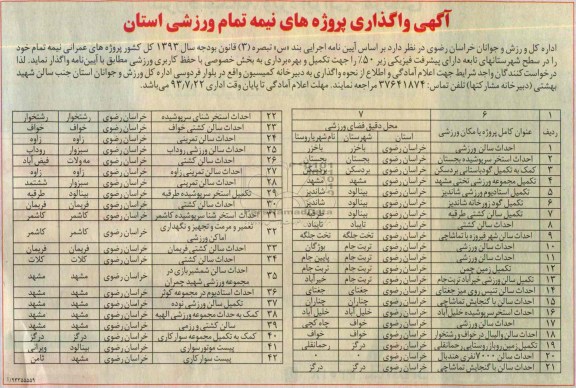 آگهی واگذاری پروژه های نیمه تمام ورزشی استان
اداره کل ورزش و جوانان خراسان رضوی در نظر دارد بر اساس آیین نامه اجرایی بند «س» تبصره (۳) قانون بودجه سال ۱۳۹۳ کل کشور پروژه های عمرانی نیمه تمام خود
را در سطح شهرستانهای تابعه دارای پیشرفت فیزیکی زیر ۵۰٪ را جهت تکمیل و بهره‌برداری به بخش خصوصی با حفظ کاربری ورزشی مطابق با آیین‌نامه واگذار نماید. لذا
درخواست کنندگان واجد شرایط جهت اعلام آمادگی و اطلاع از نحوه واگذاری به دبیرخانه کمیسیون واقع در بلوار فردوسی اداره کل ورزش و جوانان استان جنب سالن شهید
بهشتی (دبیرخانه مشارکتها) تلفن تماس: ۳۷۶۴۱۸۷۴ مراجعه نمایند. مهلت اعلام آمادگی تا پایان وقت اداری ۹۳/۷/۲۲ می‌باشد.
۱ ۶ ۷
ردیف عنوان کامل پروژه یا مکان ورزشی محل دقیق فضای ورزشی
استان شهرستان نام شهر یا روستا
۱ احداث سالن ورزشی خراسان رضوی باخرز باخرز
۲ احداث استخر سرپوشیده بجستان خراسان رضوی بجستان بجستان
۳ کمک به تکمیل گود باستانی بردسکن خراسان رضوی بردسکن بردسکن
۴ تکمیل مجموعه ورزشی تختی مشهد خراسان رضوی مشهد مشهد
۵ تکمیل استادیوم ورزشی شاندیز خراسان رضوی بینالود شاندیز
۶ تکمیل گود زورخانه شاندیز خراسان رضوی بینالود شاندیز
۷ تکمیل سالن کشتی طرقبه خراسان رضوی بینالود طرقبه
۸ احداث سالن کشتی خراسان رضوی تایباد تایباد
۹ احداث سالن شهر فیروزه با تماشاچی خراسان رضوی تخت جلگه تخت جلگه
۱۰ احداث سالن ورزشی خراسان رضوی تربت جام بوژگان
۱۱ احداث سالن ورزشی خراسان رضوی تربت جام پایین جام
۱۲ تکمیل زمین چمن خراسان رضوی تربت جام تربت جام
۱۳ تکمیل سالن ورزشی خیرآباد تربت جام خراسان رضوی تربت جام خیرآباد
۱۴ احداث سالن تنیس روی میز جغتای خراسان رضوی جغتای جغتای
۱۵ احداث سالن با گنجایش تماشاچی خراسان رضوی چناران چناران
۱۶ احداث استخر سرپوشیده خلیل آباد خراسان رضوی خلیل آباد خلیل آباد
۱۷ احداث سالن ورزشی خراسان رضوی خواف چاه کچی
۱۸ احداث سالن والیبال در خواف رشتخوار خراسان رضوی خواف خواف
۱۹ تکمیل زمین روباز روستایی رحمانقلی خراسان رضوی درگز رحمانقلی
۲۰ احداث سالن ۷۰۰۰ نفری هندبال خراسان رضوی ۰ ۰
۲۱ احداث سالن با گنجایش تماشاچی خراسان رضوی درگز درگز
۲۲ احداث استخر شنای سرپوشیده خراسان رضوی رشتخوار رشتخوار
۲۳ احداث سالن کشتی خواف خراسان رضوی خواف خواف
۲۴ احداث سالن تمرینی خراسان رضوی زاوه زاوه
۲۵ احداث سالن ورزشی روداب خراسان رضوی سبزوار روداب
۲۶ احداث سالن کشتی خراسان رضوی مه ولات فیض آباد
۲۷ احداث سالن تمرینی زاوه خراسان رضوی زاوه زاوه
۲۸ احداث سالن تمرینی خراسان رضوی سبزوار ششتمد
۲۹ تکمیل استخر سرپوشیده طرقبه خراسان رضوی بینالود طرقبه
۳۰ احداث سالن کشتی خراسان رضوی فریمان فریمان
۳۱ احداث استخر شنا سرپوشیده کاشمر خراسان رضوی کاشمر کاشمر
۳۲ تعمیر و مرمت و تجهیز و نگهداری اماکن ورزشی خراسان رضوی کاشمر کاشمر
۳۳ احداث سالن کشتی فریمان خراسان رضوی فریمان فریمان
۳۴ احداث سالن کشتی خراسان رضوی کلات کلات
۳۵ احداث سالن شمشیربازی در مجموعه ورزشی شهید چمران خراسان رضوی مشهد مشهد
۳۶ احداث استادیوم در مجموعه کوثر خراسان رضوی مشهد مشهد
۳۷ تکمیل سالن ورزشی نوده خراسان رضوی مشهد مشهد
۳۸ کمک به احداث مجموعه ورزشی الهیه خراسان رضوی مشهد مشهد
۳۹ سالن کشتی و رزمی خراسان رضوی مشهد مشهد
۴۰ کمک به تکمیل مجموعه سوارکاری خراسان رضوی درگز درگز
۴۱ پیست موتور سواری خراسان رضوی بینالود ویرانی
۴۲ پیست سوارکاری خراسان رضوی مشهد ثامن